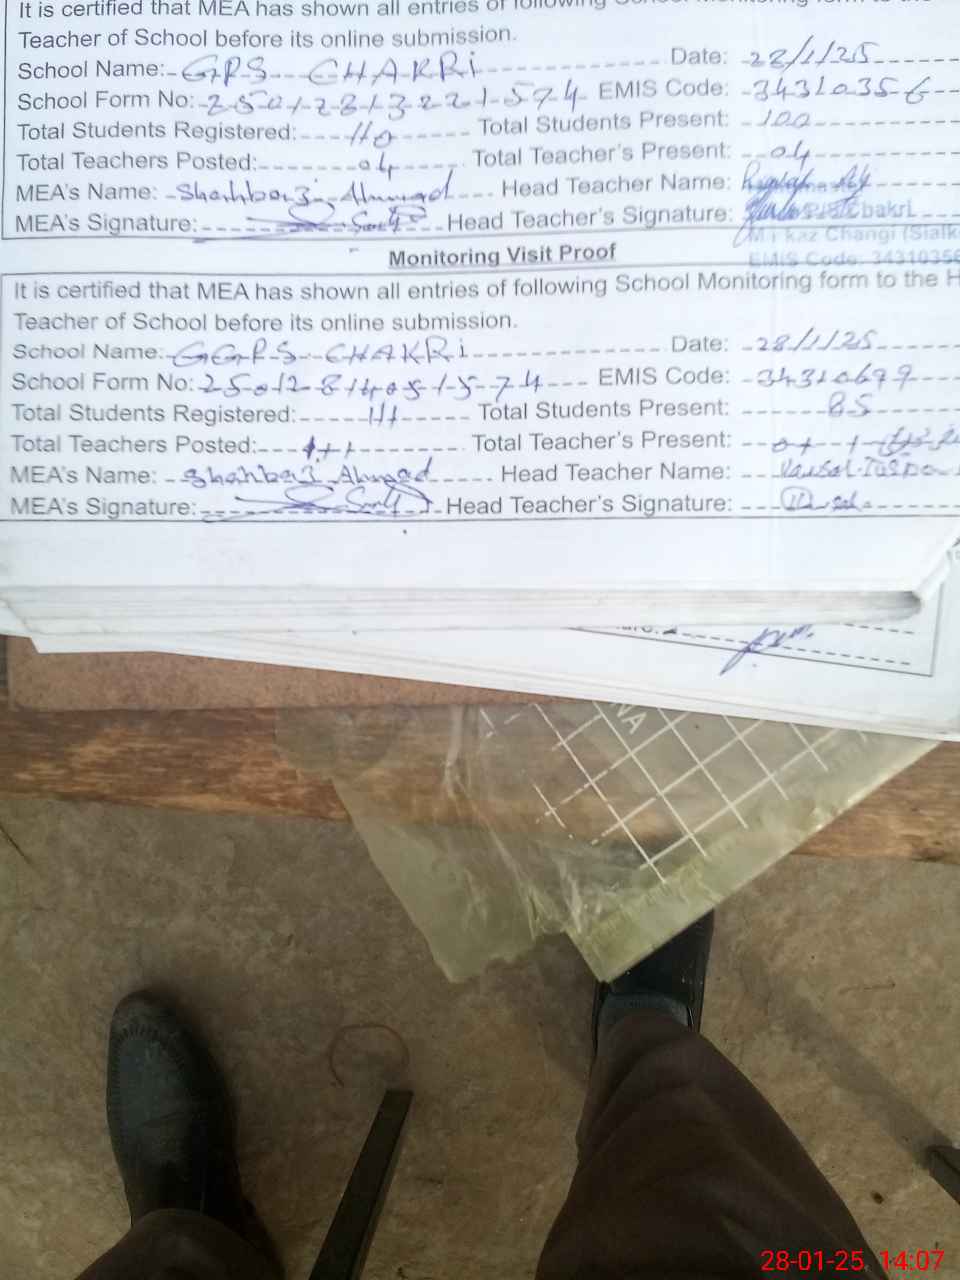 It is certified that MEA has shown all entries of following School Monitoring form to the
Teacher of School before its online submission.
School Name: GPS CHAKRi Date: 28/1/25
School Form No: 25012813221574 EMIS Code: 34310356
Total Students Registered: 110 Total Students Present: 100
Total Teachers Posted: 04 Total Teacher's Present: 04
MEA's Name: Shahbaz Ahmad Head Teacher Name:
MEA's Signature: Head Teacher's Signature:
EMIS Code: 34310356
Monitoring Visit Proof
It is certified that MEA has shown all entries of following School Monitoring form to the H
Teacher of School before its online submission.
School Name: GGPS CHAKRi Date: 28/1/25
School Form No: 25012814051574 EMIS Code: 34310699
Total Students Registered: 111 Total Students Present: 85
Total Teachers Posted: Total Teacher's Present:
MEA's Name: Shahbaz Ahmad Head Teacher Name:
MEA's Signature: Head Teacher's Signature:
28-01-25 14:07